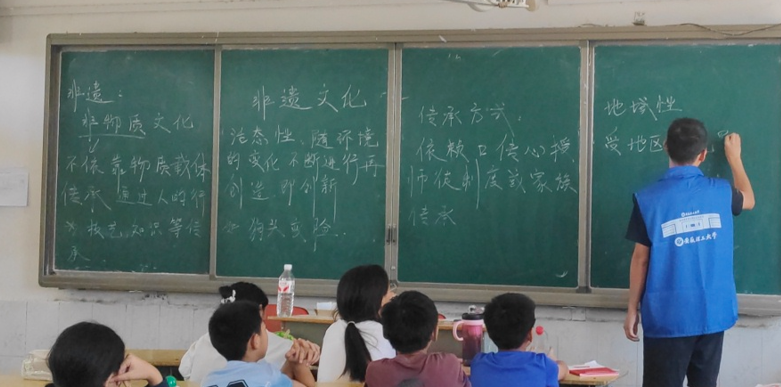 非遗：
非物质文化
不依靠物质载体
传承 通过人的行
为 技艺、知识等传
承
非遗文化
活态性、随环境
的变化不断进行再
创造 即创新
传承方式、
依赖口传心授
师徒制度或家族
传承
地域性
受地区